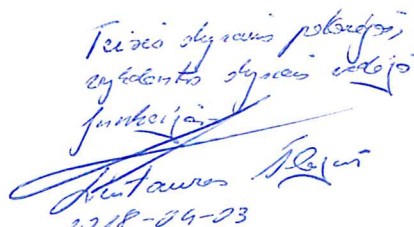 Teisės skyriaus patarėjas,
vykdantis skyriaus vedėjo
funkcijas
Kentauras
2018-04-03